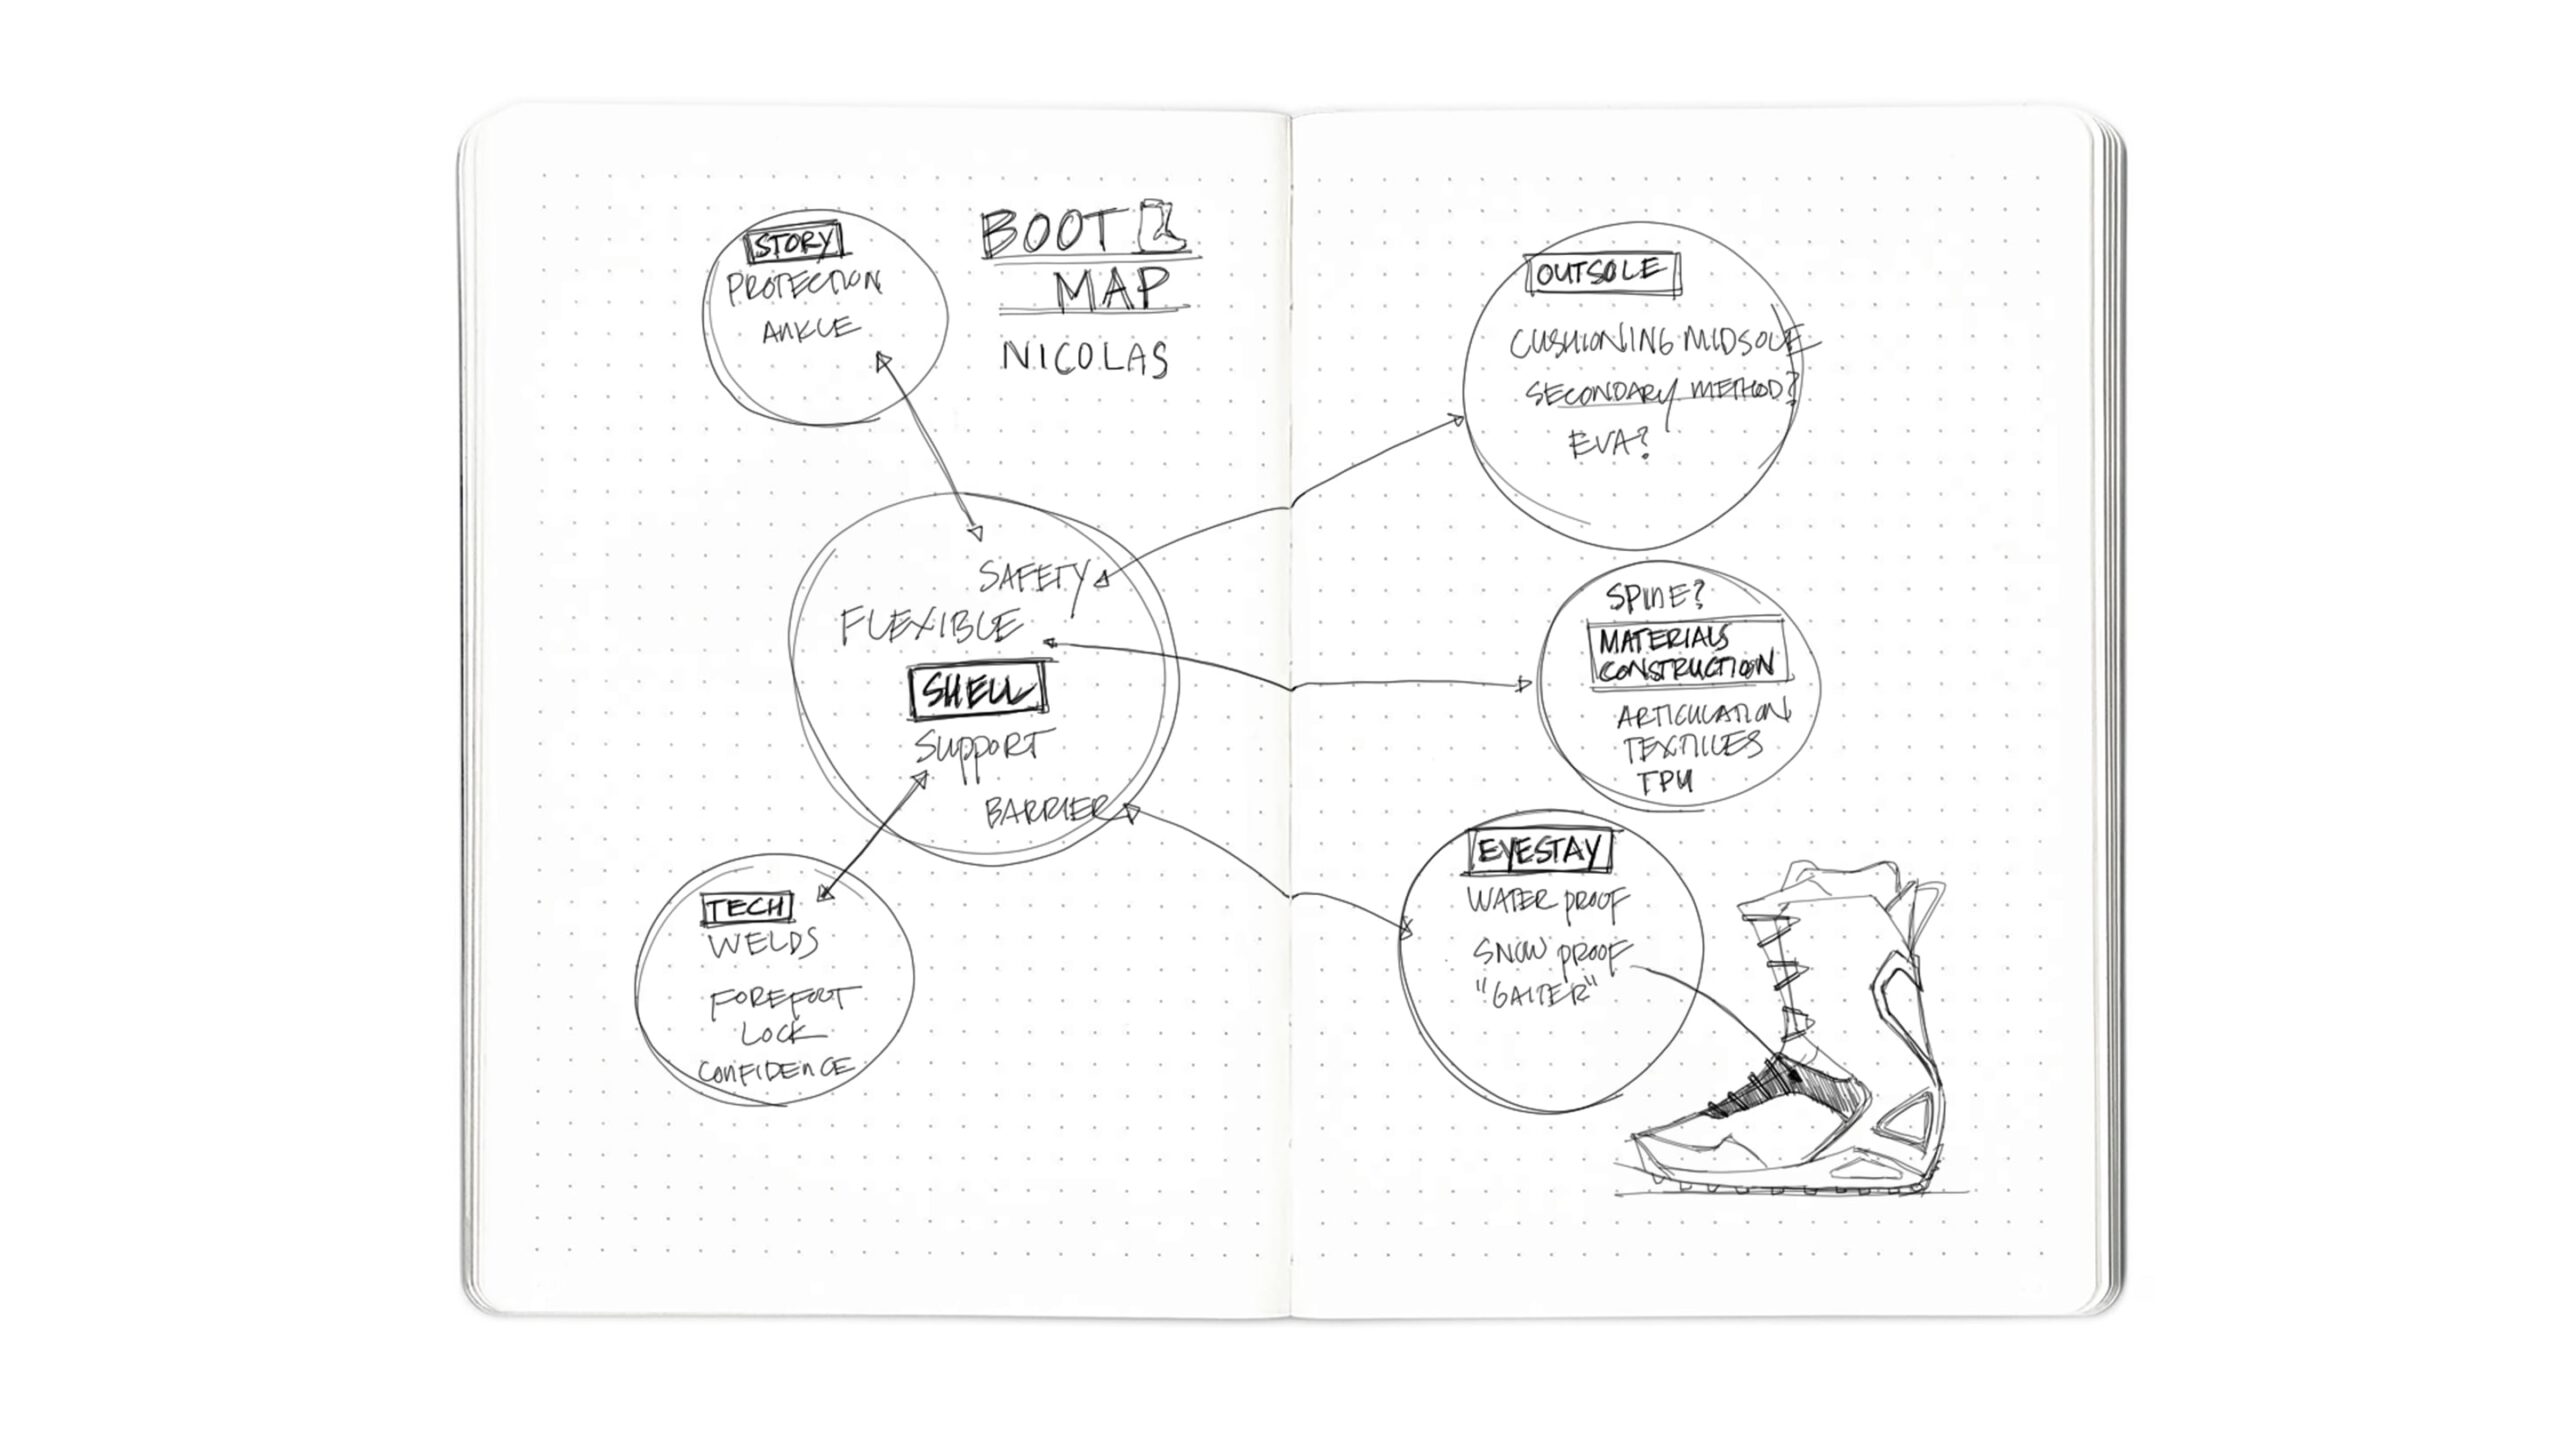 STORY
PROTECTION
ANKLE
BOOT
MAP
NICOLAS
SAFETY
FLEXIBLE
SHELL
SUPPORT
BARRIER
TECH
WELDS
FOREFOOT
LOCK
CONFIDENCE
OUTSOLE
CUSHIONING MIDSOLE
SECONDARY METHOD?
EVA?
SPINE?
MATERIALS
CONSTRUCTION
ARTICULATION
TEXTILES
TPU
EYESTAY
WATER PROOF
SNOW PROOF
"GAITER"